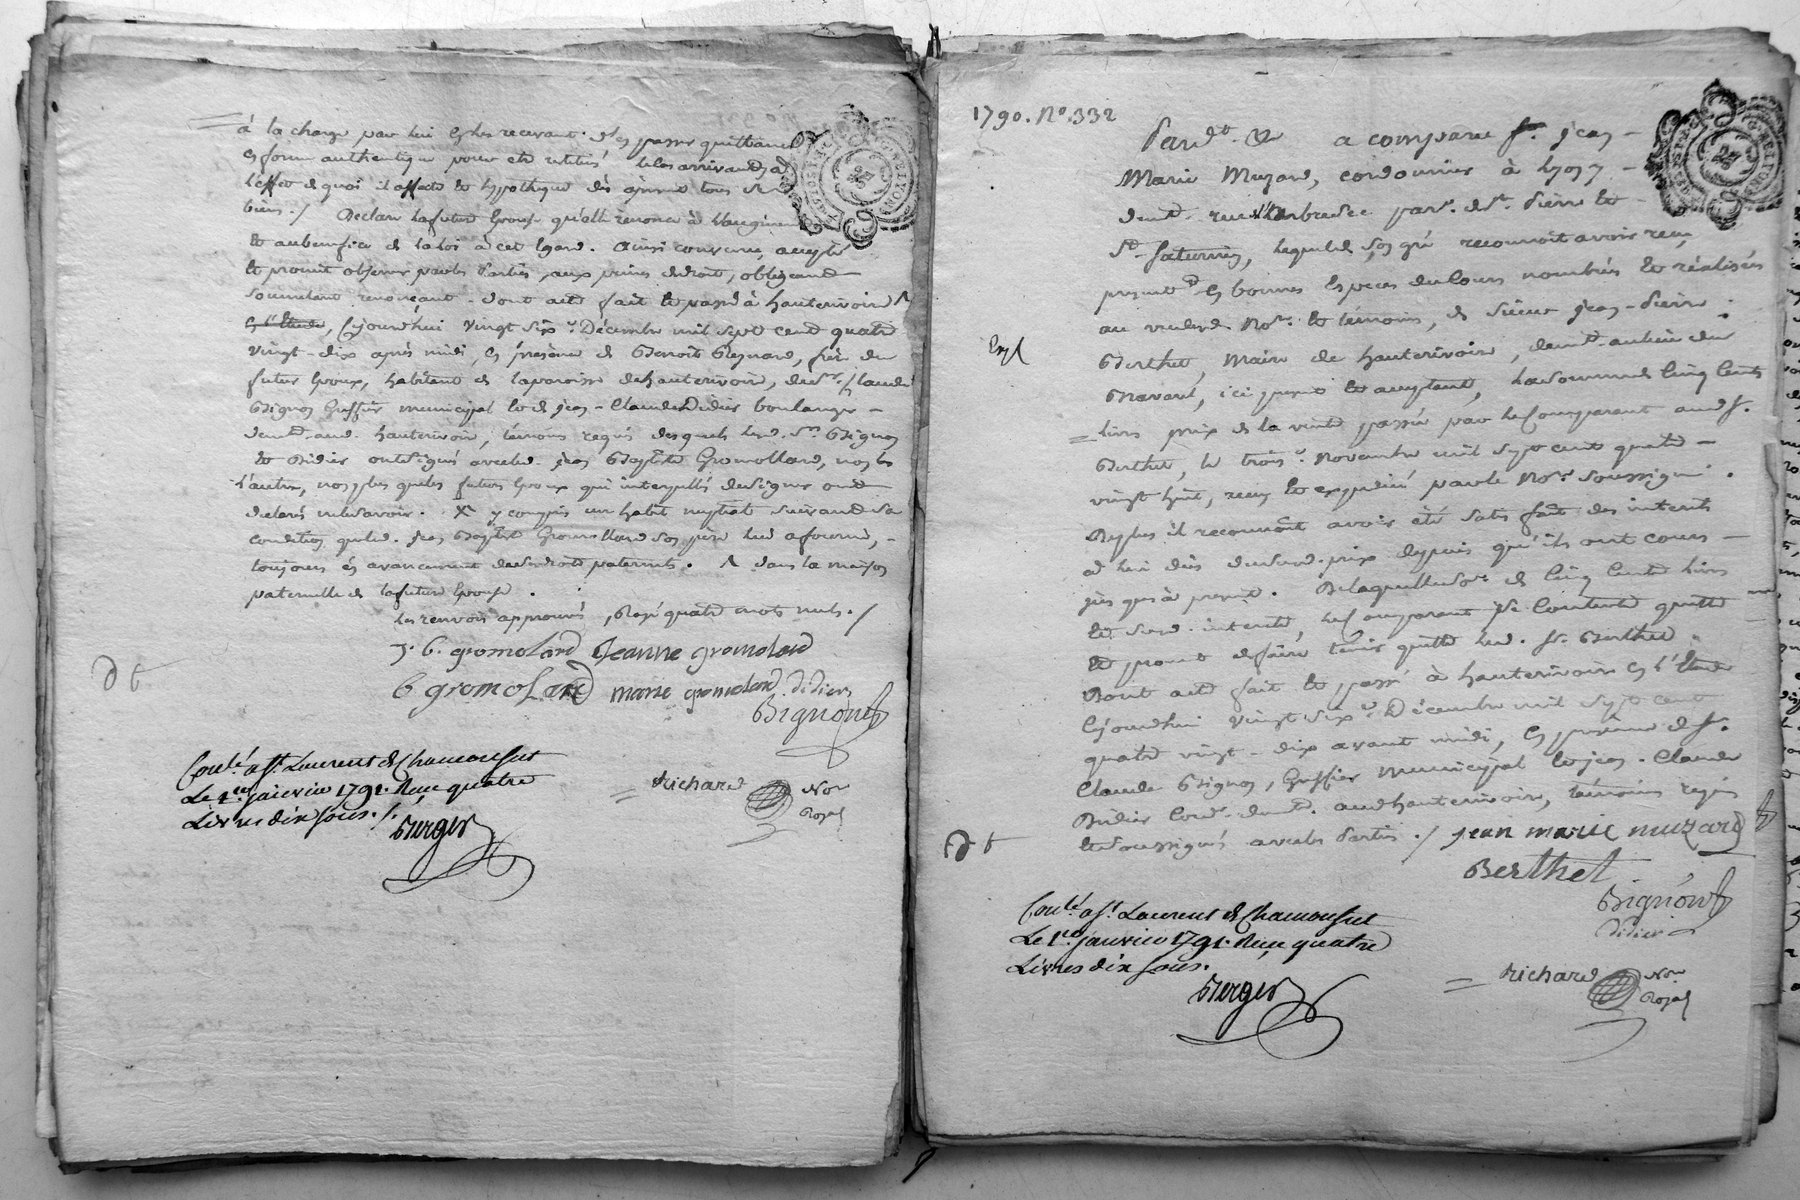 à la charge par lui en les recevant d'en passer quittance
en forme authentique pour etre restitués le cas arrivant, à
l'effet de quoi il affecte et hypothèque dès à présent tous ses
biens ./ Declare la future Epouse qu'elle renonce à l'augment
et au benefice de la loi à cet égard. Ainsi convenu, accepté
et promit observer par les Parties, aux peines de droit, obligeant
soumettant renonçant. dont acte fait et passé à hauterivoire Λ
en l'Etude, Cejourdhui vingt sixe. Décembre mil sept cent quatre
vingt-dix après midi, en présence de Benoit Reynard, frère du
futur Epoux, habitant de la paroisse de hauterivoire, de sr. Claude
Bignon Greffier municipal et de jean-Claude Didier boulanger
demt. aud. hauterivoire, témoins requis desquels lesd. srs. Bignon
et Didier ont signé avec led. jean Baptiste Gromollard, non les
l'autre, non plus que les futurs Epoux qui interpellés de signer ont
declaré ne le savoir. X y compris un habit nuptial suivant sa
condition que led. jean Baptiste Gromollard son père lui a fourni,
toujours en avancement de ses droits paternels. Λ dans la maison
paternelle de la future Epouse.
Les renvois approuvés, Rayé quatre mots nuls ./
J. b. gromolard Jeanne gromolard
b gromolard marie gromolard Didier
Bignon
Conlé. a St. Laurent de Chamousset
Le 1er. janvier 1791. Reçu quatre
Livres dix sous ./.
Berger
Richard Nore
Royal
1790. No. 332
Pardt. &c a comparu sr. jean
Marie Muzard, cordonnier à Lyon
demt. rue de l'arbre sec par. de St. Pierre et
St. Saturnin, lequel de son gré reconnoit avoir reçu
présentt. en bonnes Especes du Cours nombrées et réalisées
au vu desd. Nore. et temoins, de sieur jean-Pierre
Berthet, Maire de hauterivoire, demt. au lieu du
Navaret, ici présent et acceptant, la somme de Cinq Cents
livres prix de la vente passée par le Comparant aud. sr.
Berthet, le troise. Novembre mil sept cent quatre
vingt huit, reçue et expédiée par le Nore. soussigné.
De plus il reconnoit avoir été satisfait des interets
à lui dus dud. prix depuis qu'ils ont cours
jusques à present. De laquelle somme de Cinq Cents livres
et sesd. interets, le Comparant se Contente quitte
et promet de faire tenir quitte led. sr. Berthet.
Dont acte fait et passé à hauterivoire en l'Etude
Cejourdhui vingt sixe. Décembre mil sept cent
quatre vingt-dix avant midi, en présence de sr.
Claude Bignon, Greffier Municipal et jean-Claude
Didier Bour. demt. aud hauterivoire, témoins requis
et soussignés avec les Parties ./ jean marie muzard
Berthet
Bignon
Didier
Conlé. a St. Laurent de Chamousset
Le 1er. janvier 1791. Reçu quatre
Livres dix sous.
Berger
Richard Nore
Royal